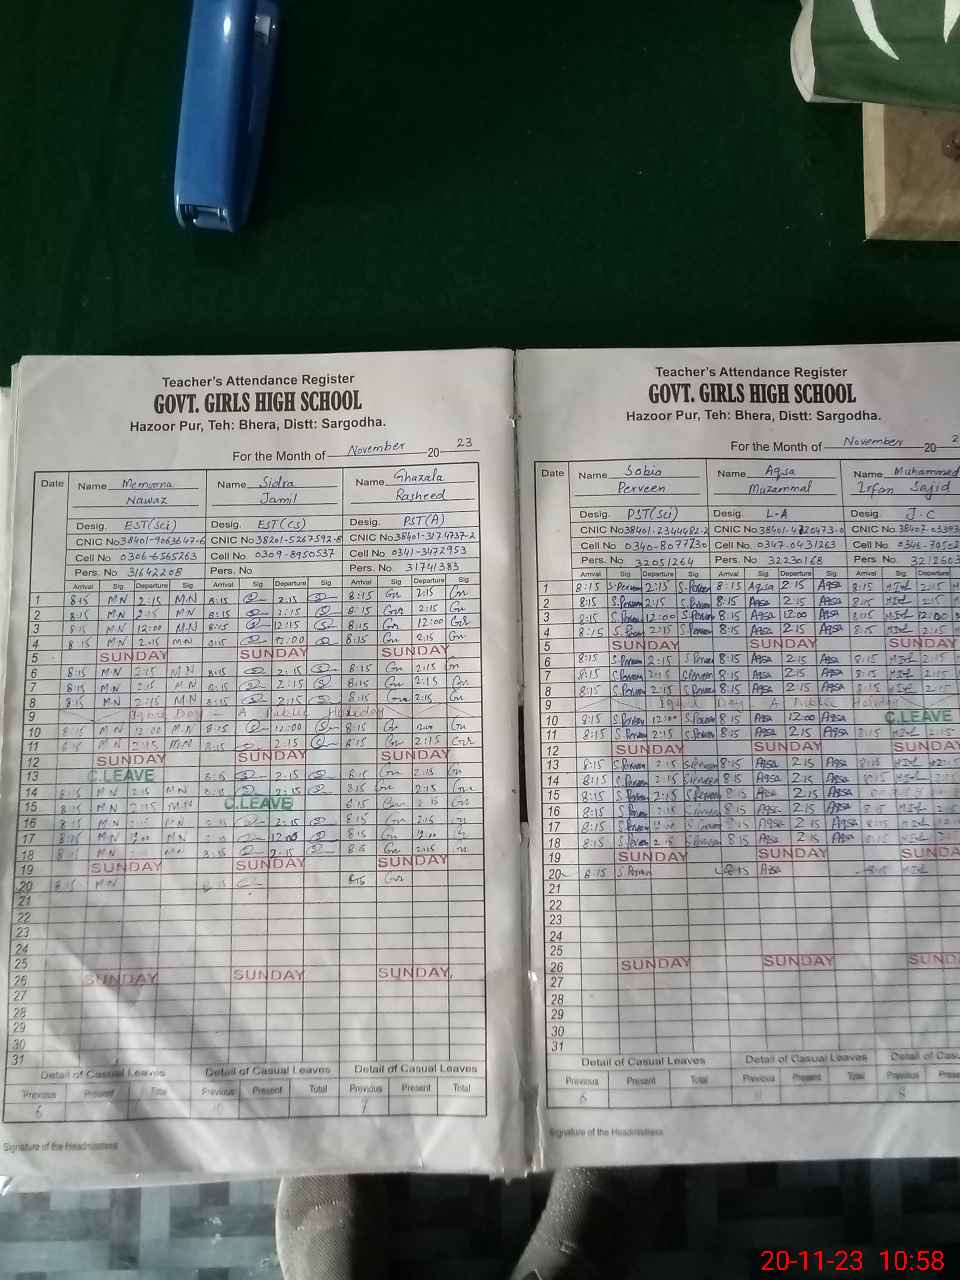 Teacher's Attendance Register
GOVT. GIRLS HIGH SCHOOL
Hazoor Pur, Teh: Bhera, Distt: Sargodha.
For the Month of November 20 23
Date Name Memoona Name Sidra Name Ghazala
Nawaz Jamil Rasheed
Desig. EST(Sci) Desig. EST(CS) Desig. PST(A)
CNIC No 38401-9063647-6 CNIC No 38201-5267592-8 CNIC No 38401-3174737-2
Cell No 0306-6565263 Cell No 0309-8950537 Cell No 0341-3472953
Pers. No 31642208 Pers. No Pers. No 31741383
Arrival Sig Departure Sig Arrival Sig Departure Sig Arrival Sig Departure Sig
1 8:15 M N 2:15 M.N 8:15 2:15 8:15 Gn 2:15 Gn
2 8:15 M N 2:15 M.N 8:15 2:15 8:15 2:15 Gn
3 8:15 M N 12:00 M N 8:15 12:15 8:15 Gr 12:00 Gr
4 8:15 M N 2:15 M.N 8:15 8:15 Gn 2:15 Gn
5 SUNDAY SUNDAY SUNDAY
6 8:15 M.N 2:15 M N 8:15 2:15 8:15 Gn 2:15 Gn
7 8:15 M.N 2:15 M N 8:15 2:15 8:15 Gn 2:15 Gn
8 8:15 M.N 2:15 M N 8:15 2:15 8:15 2:15 Gn
9 Iqbal Day - A Public Holiday
10 8:15 M N 12:00 M.N 8:15 12:00 8:15 Gn Gn
11 8:15 M.N 2:15 M.N 8:15 2:15 8:15 Gn 2:15 Gr
12 SUNDAY SUNDAY SUNDAY
13 C.LEAVE 8:15 2:15 8:15 Gn 2:15 Gn
14 8:15 M N 2:15 M N 8:15 2:15 8:15 Gn 2:15 Gn
15 8:15 M.N 2:15 M N C.LEAVE 8:15 2:15 Gn
16 8:15 M N 2:15 M N 2:15 8:15 Gn 2:15
17 8:15 M N M N 12:00 8:15 Gn 12:00
18 8:15 M N M N 8:15 2:15 8:15 Gn 2:15
19 SUNDAY SUNDAY SUNDAY
20 8:15 M N 8:15 8:15 Gr
21
22
23
24
25
26 SUNDAY SUNDAY SUNDAY
27
28
29
30
31
Detail of Casual Leaves Detail of Casual Leaves Detail of Casual Leaves
Previous Present Total Previous Present Total Previous Present Total
6 10 9
Signature of the Headmistress
Teacher's Attendance Register
GOVT. GIRLS HIGH SCHOOL
Hazoor Pur, Teh: Bhera, Distt: Sargodha.
For the Month of November 20 2
Date Name Sobia Name Aqsa Name Muhammad
Perveen Muzammal Irfan Sajid
Desig. PST(Sci) Desig. L-A Desig. J.C
CNIC No 38401-2344482-2 CNIC No 38401-4720473-0 CNIC No
Cell No 0340-8077230 Cell No 0347-0431263 Cell No
Pers. No 32051264 Pers. No 32230168 Pers. No 3212603
Arrival Sig Departure Sig Arrival Sig Departure Sig Arrival Sig Departure
1 8:15 S.Perveen 2:15 S.Perveen 8:15 Aqsa 2:15 Aqsa 8:15 2:15
2 8:15 S.Perveen 2:15 S.Perveen 8:15 Aqsa 2:15 Aqsa 8:15
3 8:15 S.Perveen 12:00 S.Perveen 8:15 Aqsa 12:00 Aqsa 8:15 12:00
4 8:15 S.Perveen 2:15 S.Perveen 8:15 Aqsa 2:15 Aqsa 8:15 2:15
5 SUNDAY SUNDAY SUNDAY
6 8:15 S.Perveen 2:15 S.Perveen 8:15 Aqsa 2:15 Aqsa 8:15 2:15
7 8:15 S.Perveen 2:15 S.Perveen 8:15 Aqsa 2:15 Aqsa 8:15 2:15
8 8:15 S.Perveen 2:15 S.Perveen 8:15 Aqsa 2:15 Aqsa 8:15 2:15
9 Iqbal Day A Public Holiday
10 8:15 S.Perveen 12:00 S.Perveen 8:15 Aqsa 12:00 Aqsa C.LEAVE
11 8:15 S.Perveen 2:15 S.Perveen 8:15 Aqsa 2:15 Aqsa 8:15 2:15
12 SUNDAY SUNDAY SUNDAY
13 8:15 S.Perveen 2:15 S.Perveen 8:15 Aqsa 2:15 Aqsa 8:15 2:15
14 8:15 S.Perveen 2:15 S.Perveen 8:15 Aqsa 2:15 Aqsa 8:15
15 8:15 S.Perveen 2:15 S.Perveen 8:15 Aqsa 2:15 Aqsa
16 8:15 S.Perveen 2:15 S.Perveen 8:15 Aqsa 2:15 Aqsa 8:15
17 8:15 S.Perveen S.Perveen 8:15 Aqsa 2:15 Aqsa 8:15
18 8:15 S.Perveen 2:15 S.Perveen 8:15 Aqsa 2:15 Aqsa
19 SUNDAY SUNDAY SUNDA
20 8:15 S.Perveen 8:15 Aqsa 8:15
21
22
23
24
25
26 SUNDAY SUNDAY SUND
27
28
29
30
31
Detail of Casual Leaves Detail of Casual Leaves Detail of Cas
Previous Present Total Previous Present Total Previous Prese
6 11 8
Signature of the Headmistress
20-11-23 10:58